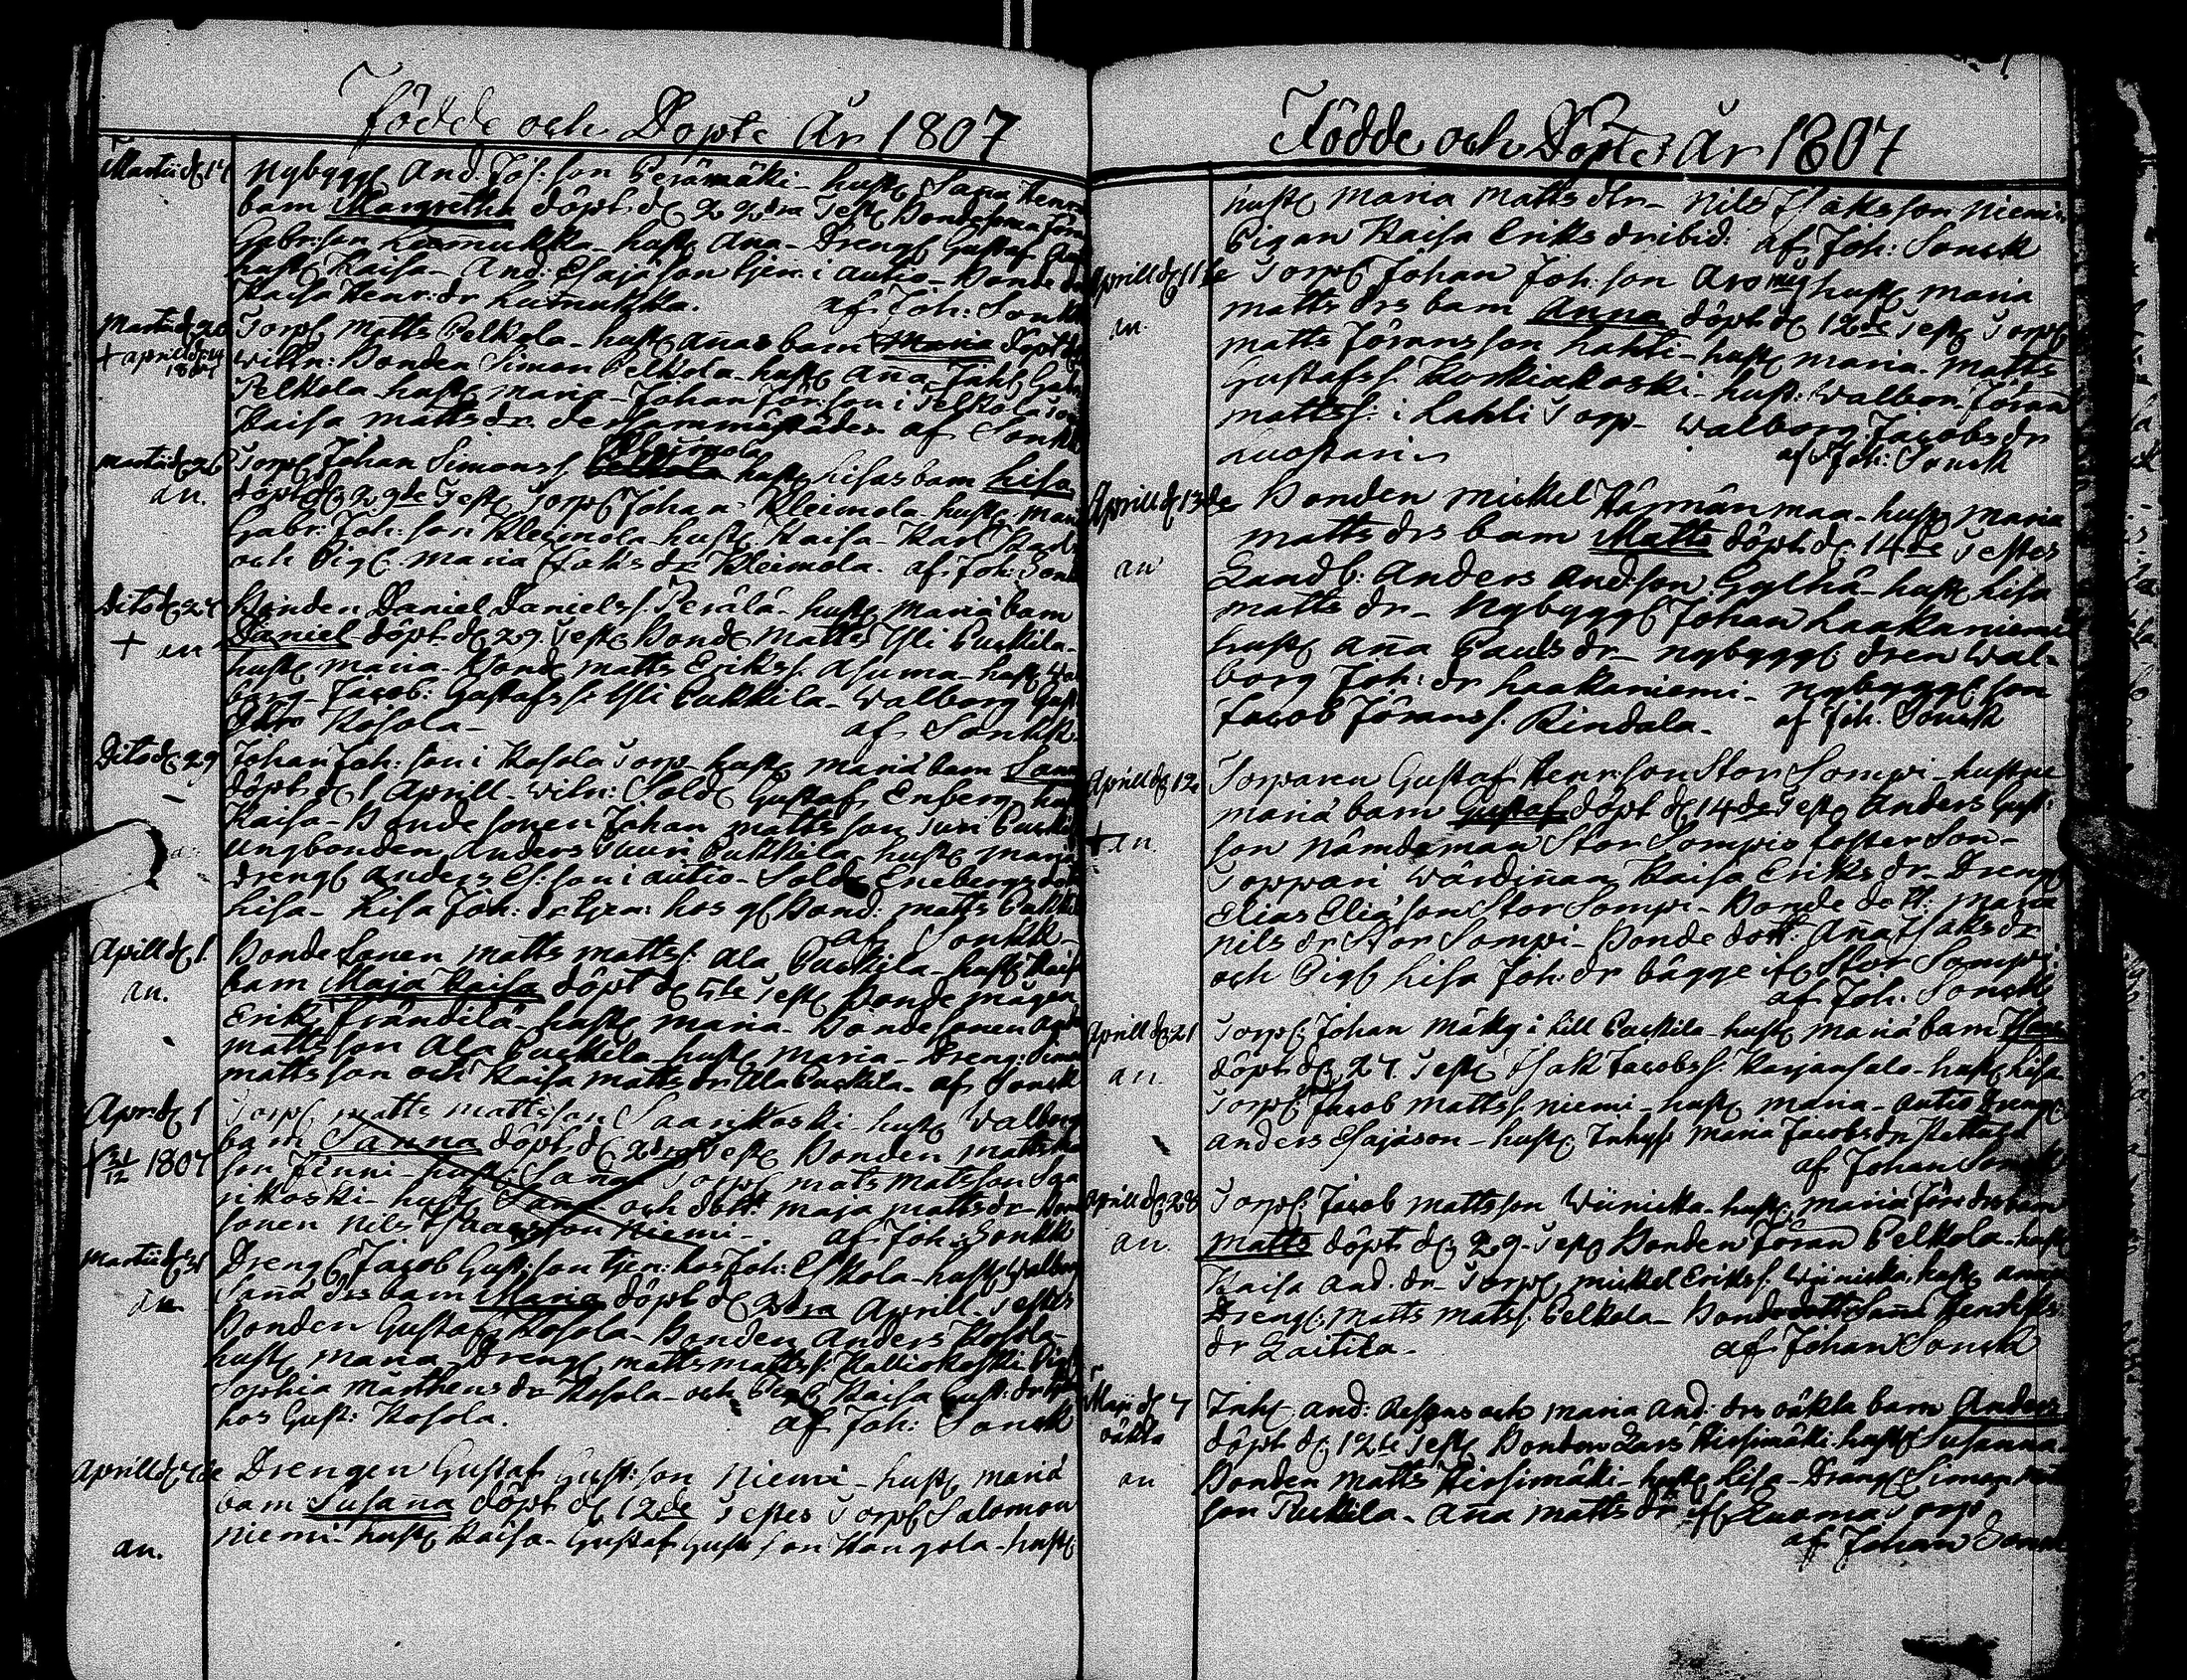 Födde och Döpte År 1807
Martii d 17 Nybygg And. Joh: son Perämäki - hust Sanna Henr
barn Margretha döpt d 22dra Test Bondesonen
Gabr: son Luomukka - hust Aña - Dreng Gustaf
hust Kaisa - And: Esaja son tjen: i Autio - Bonde
Kaisa Henr: dr Luomukka. af Joh: Sonk
Martii d 20 Torp Matts Pelkola - hust Añas barn Maria döpt
+ april d 14 1807 Wittn: Bonden Simon Pelkola - hust Aña, Joh
Pelkola - hust Maria - Johan Jör: son i Pelkola
Kaisa Matts dr. de sammastädes af Sonk
Martii d 26 Torp Johan Simons s. hust Lisas barn Lisa
an. döpt d 29de Test Torp Johan Kleimola - hust Mari
Gabr: Joh: son Kleimola - hust Kaisa - Karl
och Pig: Maria Isaks dr Kleimola. af Joh: Sonk
Dito d 27 Bonden Daniel Daniels s. Perälä - hust Maria barn
+ an Daniel döpt d 29. Test Bond Matts Yli Puckila -
hust Maria - Bond Matts Eriks s. Asuma - hust Wal
borg - Jacob: Gustafs s: Yli Pukkila - Walborg Gust
Kosola - af Sonkk.
Dito d 29 Johan Joh: son i Kosola Torp - hust Maria barn
- döpt d 1 Aprill - Witn: Sold Gustaf Enberg hust
Kaisa - Bondesonen Johan Matts son
ungbonden Anders Juuri Pukkila - hust Maria
dreng Anders Es: son i Autio - Sold Enebergs
Lisa - Lisa Joh: dr tjen: hos Bond: Matts
af Sonkk -
Aprill d 1. Bonde Sonen Matts Matts s: Ala Puckila - hust Kais
an. barn Maja Kaisa döpt d 5te Test Bonde mågen
Erik Frändilä - hust Maria - Bonde Sonen
Matts son Ala Puckila - hust Maria - Dreng: Simon
Matts son och Kaisa Matts dr Ala Puckila - af Sonck
Apr d 1 Torp Matts Mattsson Saarikoski - hust Walborg
31/12 1807 barn Sanna döpt d 2dra Test Bonden Matts
son Finni hust: Sana Torp Mats Matsson Saa
rikoski - hust Sana - och dott: Maja Matts dr -
Sonen Nils Isaacsson Niemi - af Joh: Sonkk
Martii d 31 Dreng Jacob Gust: son tjen: hos Joh: Kola - hust Walborg
an barn Maria döpt d 2dra Aprill - Testes
Bonden Gustaf Kosola - Bonden Anders Kosola -
hust Maria Dreng Matts Matts s: Kalliokoski
Sophia Märthens dr Kosola - och Pig: Kaisa Gust: dr
hos Gust: Kosola. af Joh: Sonck
Aprill d Drengen Gustaf Gust: son Niemi - hust Maria
barn Susaña döpt d 12de Testes Torp Salomon
an. Niemi - hust Kaisa - Gustaf Gust son Kangola - hust
Födde och Döpte År 1807
hust Maria Matts dtr - Nils Isaksson Niemi -
Pigan Kaisa Eriks dr ibid: af Joh: Sonck
Aprill d 11te Torp Johan Joh: son Aro hust Maria
an. Matts drs barn Anna döpt d 12de Test Torp
Matts Jörans son Lahti - hust Maria - Matts
Gustafs s: Koskiakoski - hust: Walbor - Jöran
Matts s: i Lahti Torp - Walborg Jacobs dr
Luostari af Joh: Sonck
Aprill d 13de Bonden Mickel Härmänmaa - hust Maria
Matts drs barn Matts döpt d 14de Testes
an Landb: Anders And: son Gylhä - hust Lisa
Matts dr - Nybygg Johan Laakaniemi
hust Aña Pauls dr - nybygg: dren Wal-
borg Joh: dr Laakaniemi - nybygg son
Jacob Jörans s. Rindala. af Joh. Sonck
Aprill d 12 Torparen Gustaf Henr: son Stor Sompi - hustru
Maria barn Gustaf döpt d 14de Test Anders Gust:
+ an. son Nämdeman Stor Sompis foster Son -
Torpari Wärdiñan Kaisa Eriks dr - Dreng
Elias Elia son Stor Sompi - Bonde dott: Maria
Nils dr Stor Sompi - Bonde dott: Aña Isaks dr
och Pig Lisa Joh: dr bägge if Stor Sompi
af Joh: Sonck
Aprill d 21 Torp: Johan Mäky i till Puckila - hust Maria barn
an. döpt d 27. Test Isak Jacobs s: Karjansalo - hust Lisa
Torp Jacob Matts s. Niemi - hust Maria - Autio dreng
Anders Esajason - hust: Inhys: Maria Jacobs dr
af Johan Sonck
Aprill d 28 Torp: Jacob Mattsson Wiinicka - hust Maria Jörs drs barn
an. Matts döpt d 29 - Test Bonden Jöran Pelkola - hust
Kaisa And. dr - Torp Mickel Eriks s. Wiinicka, hust Anna
Dreng: Matts Mats s: Pelkola - Bonde dott: Sana Henrikss
dr Laitila - af Johan Sonck
Maji d 7 Inh And: och Maria And: drs oäkta barn Anders
oäkta döpt d 12te Test Bonden Lars Hirsimäki - hust Susanna
an Bonden Matts Hirsimäki - hust Lisa - Dräng Simon
son Puckila - Aña Matts dr if Luoma Torp
af Johan Sonck